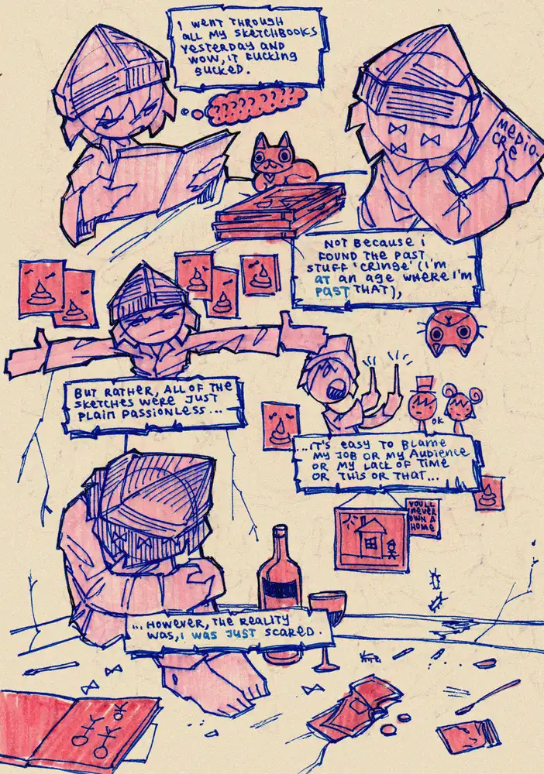 I WENT THROUGH
ALL MY SKETCHBOOKS
YESTERDAY AND
WOW, IT FUCKING
SUCKED.
MEDIO-
CRE
NOT BECAUSE i
FOUND THE PAST
STUFF 'CRINGE' (I'M
AT an AGE WHERE I'M
PAST THAT),
BUT RATHER, ALL OF THE
SKETCHES WERE JUST
PLAIN PASSIONLESS...
OK
...IT'S EASY TO BLAME
MY JOB OR MY AUDIENCE
OR MY LACK OF TIME
OR THIS OR THAT...
YOU'LL
NEVER
OWN A
HOME
...HOWEVER, THE REALITY
WAS, I WAS JUST SCARED.
OK